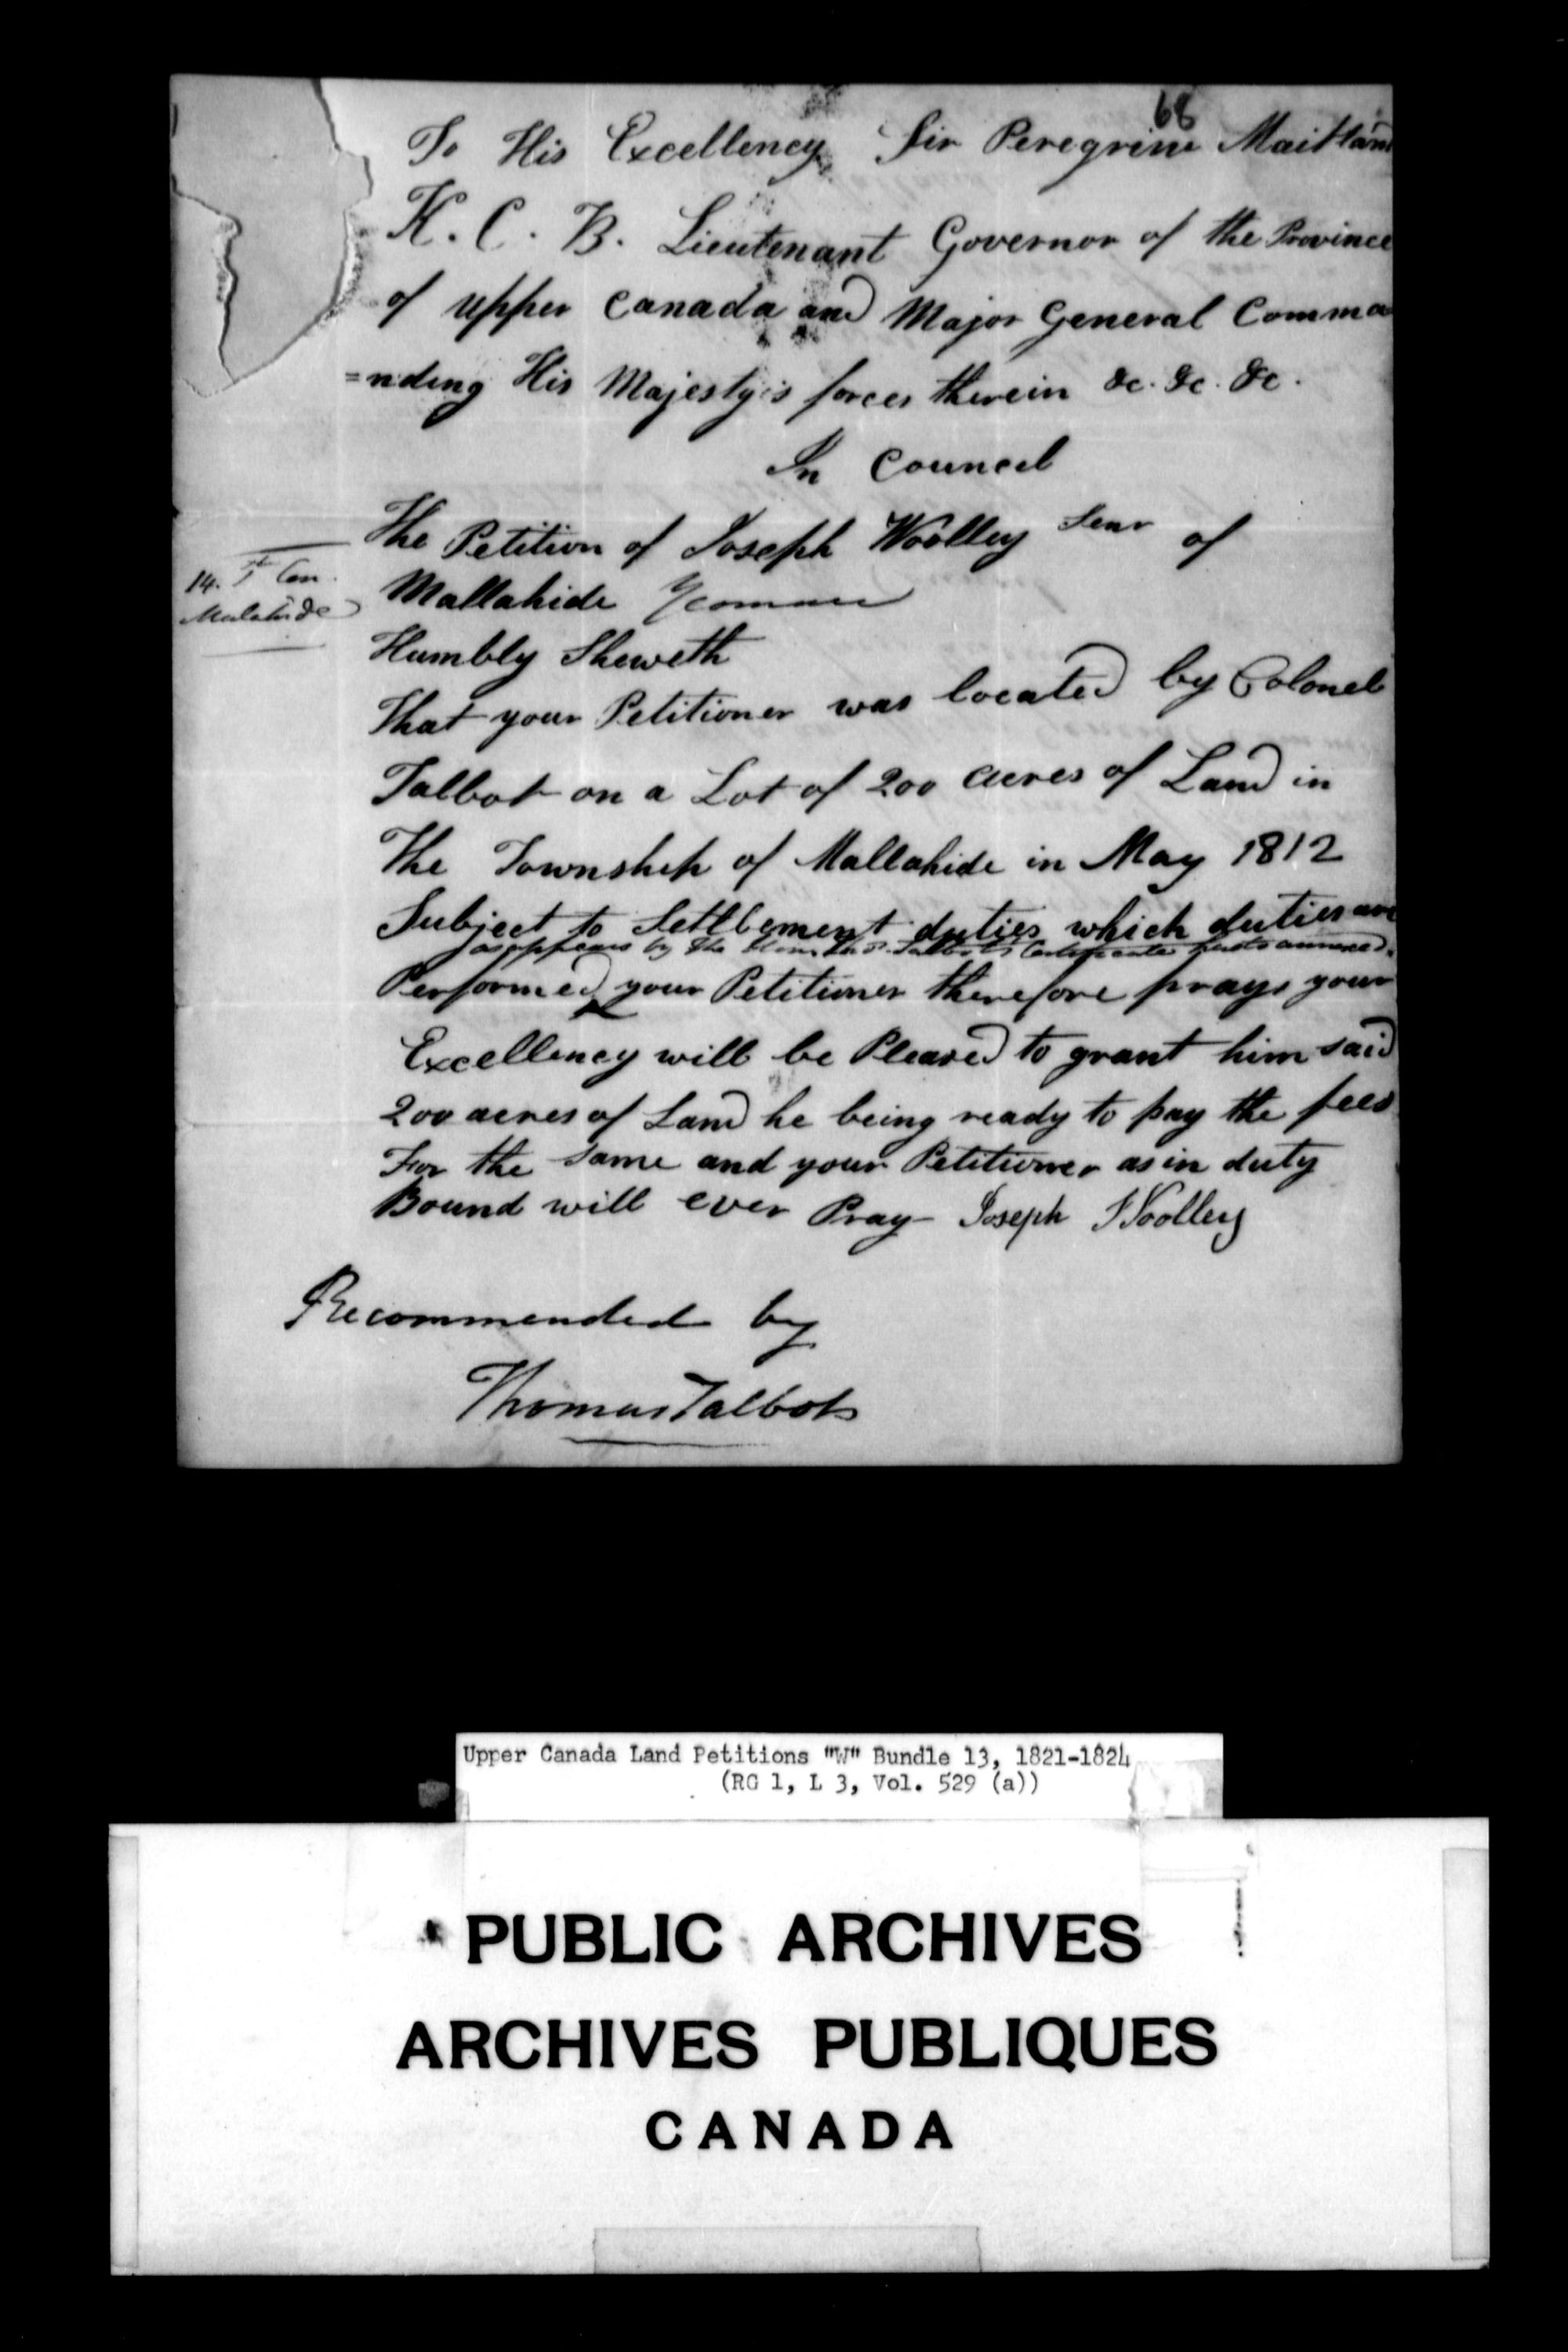 68
To His Excellency Sir Peregrine Maitland
K. C. B. Lieutenant Governor of the Province
of upper Canada and Major General Comma
=nding His Majesty's forces therein &c. &c. &c.
In Council
The Petition of Joseph Woolley Senr of
Mallahide Yeoman
14. 7th Con.
Malahide
Humbly Sheweth
That your Petitioner was located by Colonel
Talbot on a Lot of 200 acres of Land in
The Township of Mallahide in May 1812
Subject to Settlement duties which duties are
as appears by the Honble Thos. Talbot's Certificate annexed.
Performed your Petitioner therefore prays your
Excellency will be Pleased to grant him said
200 acres of Land he being ready to pay the fees
For the same and your Petitioner as in duty
Bound will ever Pray Joseph Woolley
Recommended by
Thomas Talbot
Upper Canada Land Petitions "W" Bundle 13, 1821-1824
(RG 1, L 3, Vol. 529 (a))
PUBLIC ARCHIVES
ARCHIVES PUBLIQUES
CANADA